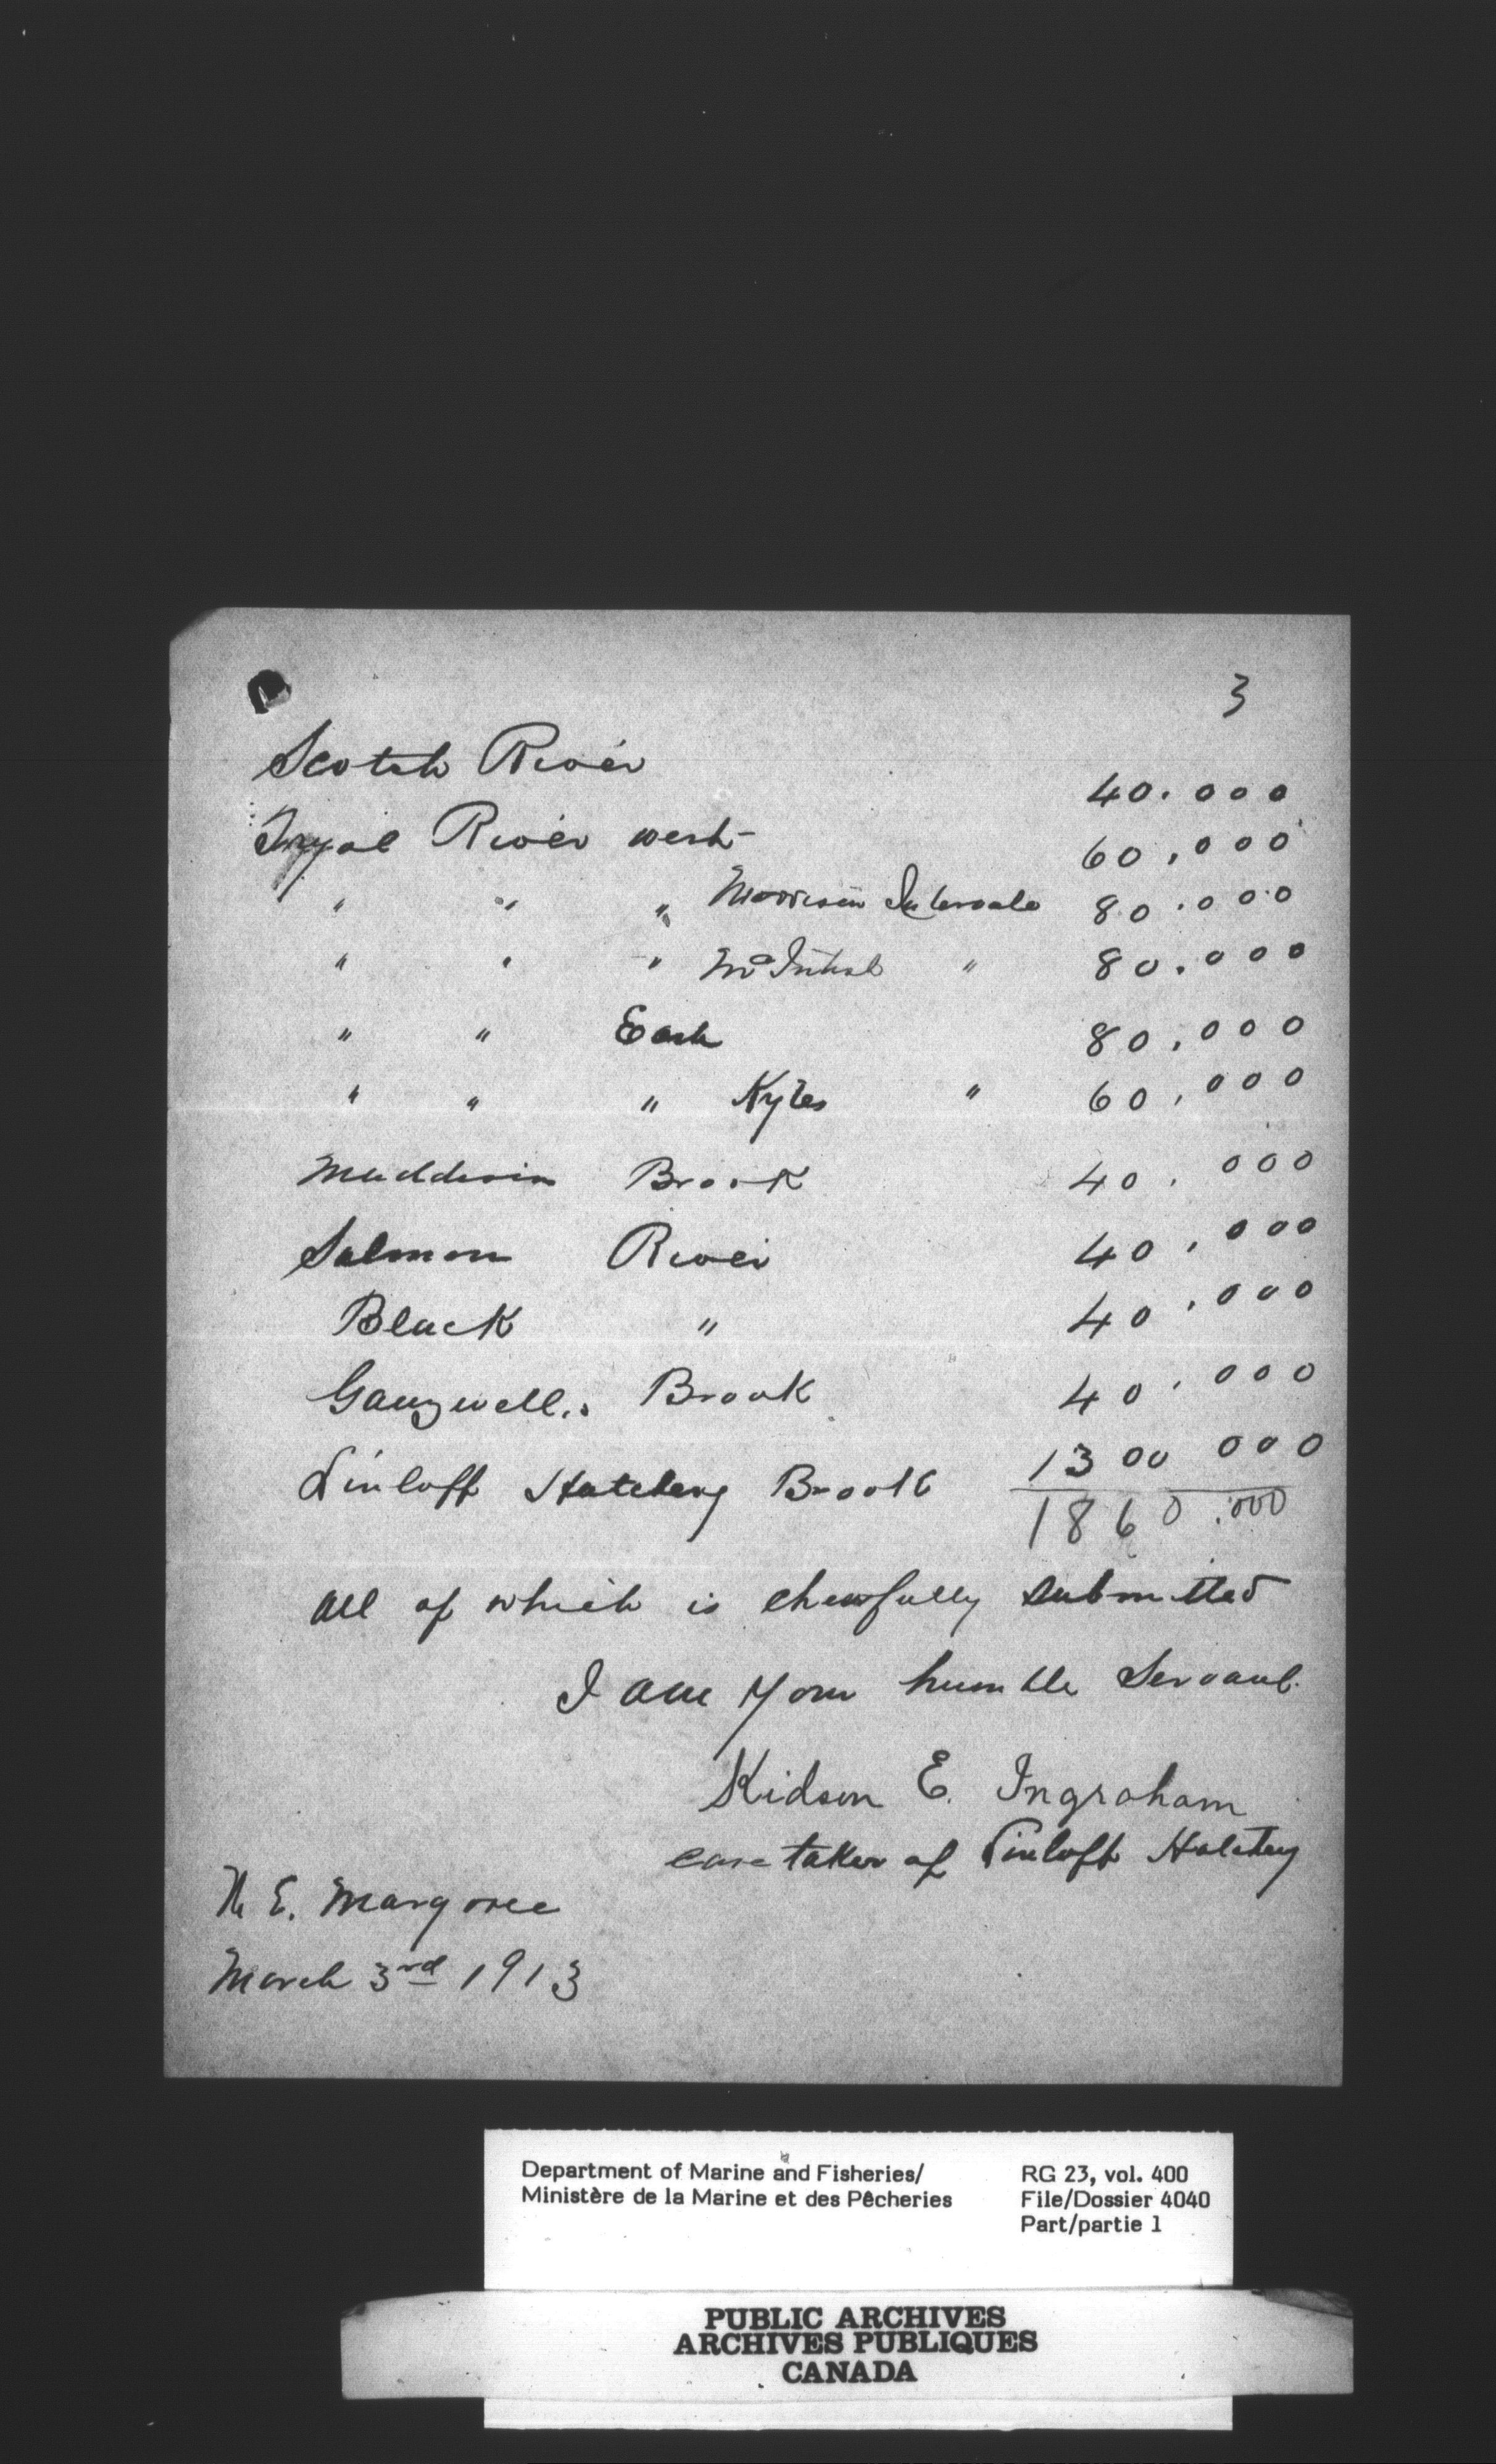 3
Scotch River 40.000
River west 60,000
" " " Morrison Intervale 80.000
" " " McIntosh " 80.000
" " East 80,000
" " " Kyles " 60,000
Brook 40.000
Salmon River 40,000
Black " 40,000
Brook 40.000
Linloff Hatchery Brook 1300 000
1860.000
all of which is cheerfully submitted
I am your humble Servant.
Kidson E. Ingraham
care taker of Linloff Hatchery
N. E. Margaree
March 3rd 1913
Department of Marine and Fisheries/
Ministère de la Marine et des Pêcheries
RG 23, vol. 400
File/Dossier 4040
Part/partie 1
PUBLIC ARCHIVES
ARCHIVES PUBLIQUES
CANADA